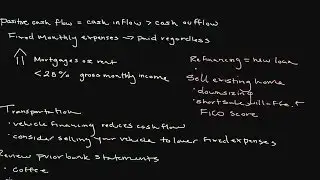 Positive cash flow = cash inflow > cash outflow
Fixed monthly expenses → paid regardless
Mortgages or rent
<28% gross monthly income
Refinancing = new loan
Sell existing home
• downsizing
• short sale will affect
FICO score
Transportation
• vehicle financing reduces cash flow
• consider selling your vehicle to lower fixed expenses
Review prior bank statements
• coffee